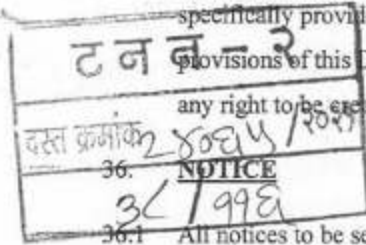 specifically provid
ट न न - २
provisions of this
any right to be cre
दस्त क्रमांक २४०६५ /२०२१
36. NOTICE
३८ / ११६
36.1 All notices to be se